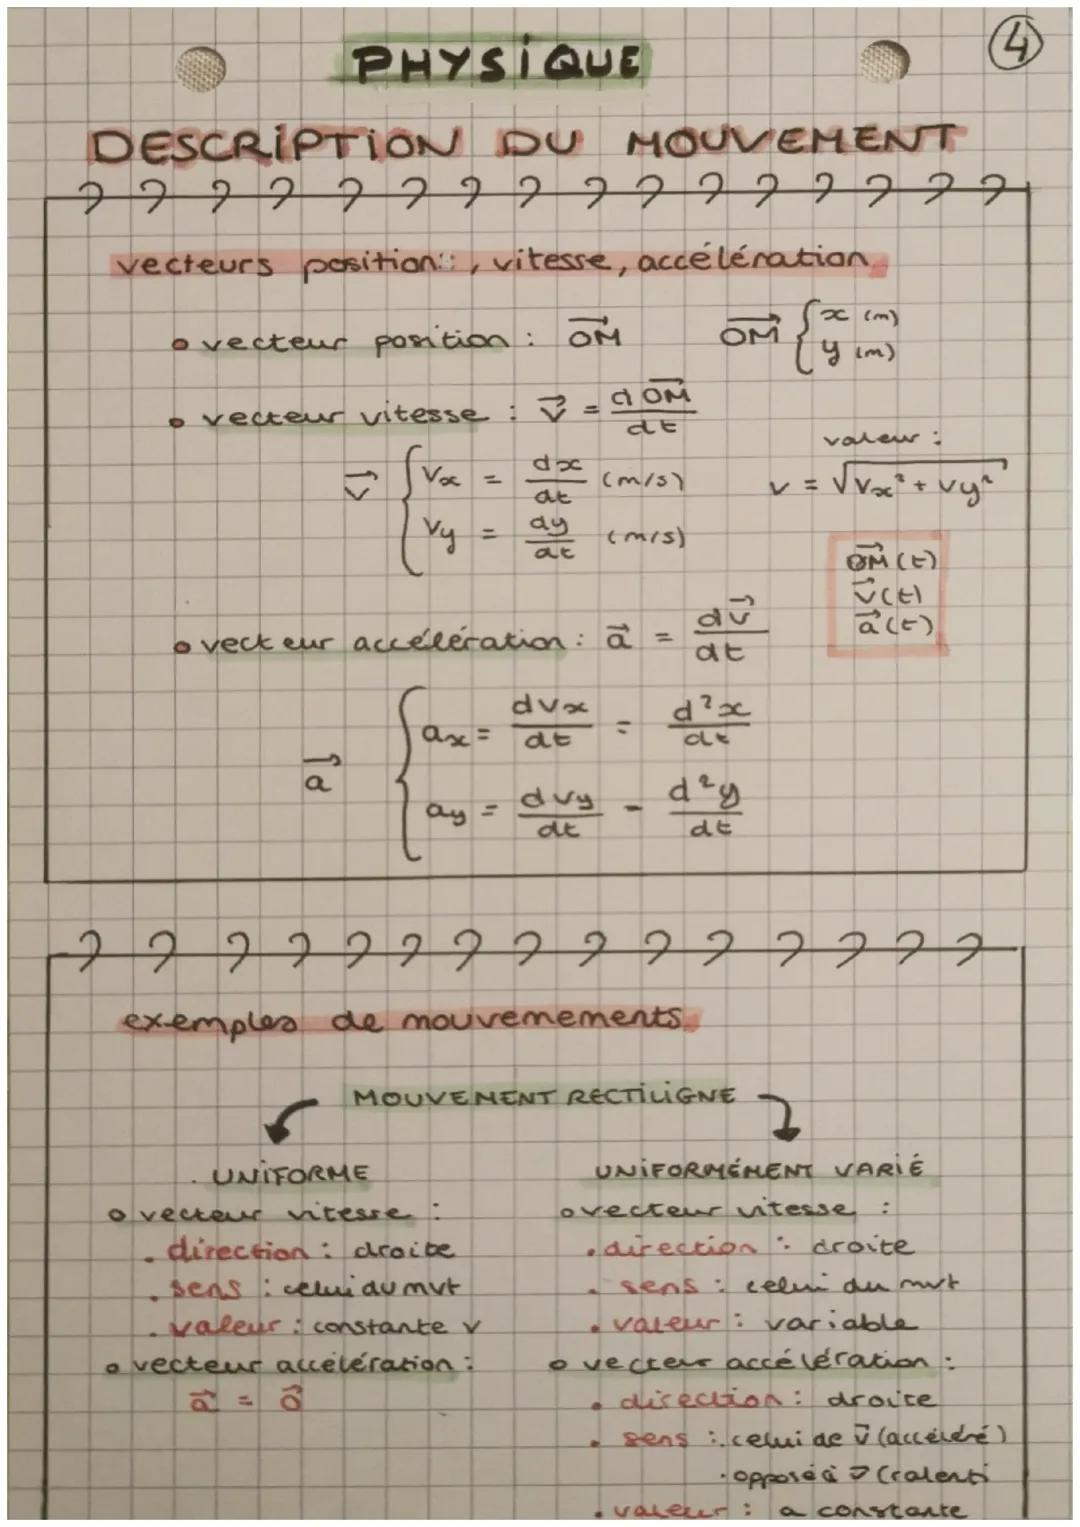 ④
PHYSIQUE
DESCRIPTION DU MOUVEMENT
vecteurs position:, vitesse, accélération
• vecteur position : OM⃗   OM⃗ { x (m)
y (m)
• vecteur vitesse : v⃗ = dOM⃗/dt
valeur :
v⃗ { Vx = dx/dt (m/s)   v = √Vx² + Vy²
Vy = dy/dt (m/s)
OM⃗(t)
v⃗(t)
a⃗(t)
• vecteur accélération : a⃗ = dv⃗/dt
a⃗ { ax = dvx/dt = d²x/dt
ay = dvy/dt - d²y/dt
exemples de mouvemements
MOUVEMENT RECTILIGNE
UNIFORME
o vecteur vitesse :
. direction : droite
. sens : celui du mvt
. valeur : constante v
o vecteur accélération :
a⃗ = o⃗
UNIFORMÉMENT VARIÉ
o vecteur vitesse :
. direction : droite
. sens : celui du mvt
. valeur : variable
o vecteur accélération :
. direction : droite
. sens : . celui de v⃗ (accéléré)
. opposé à v⃗ (ralenti
. valeur : a constante